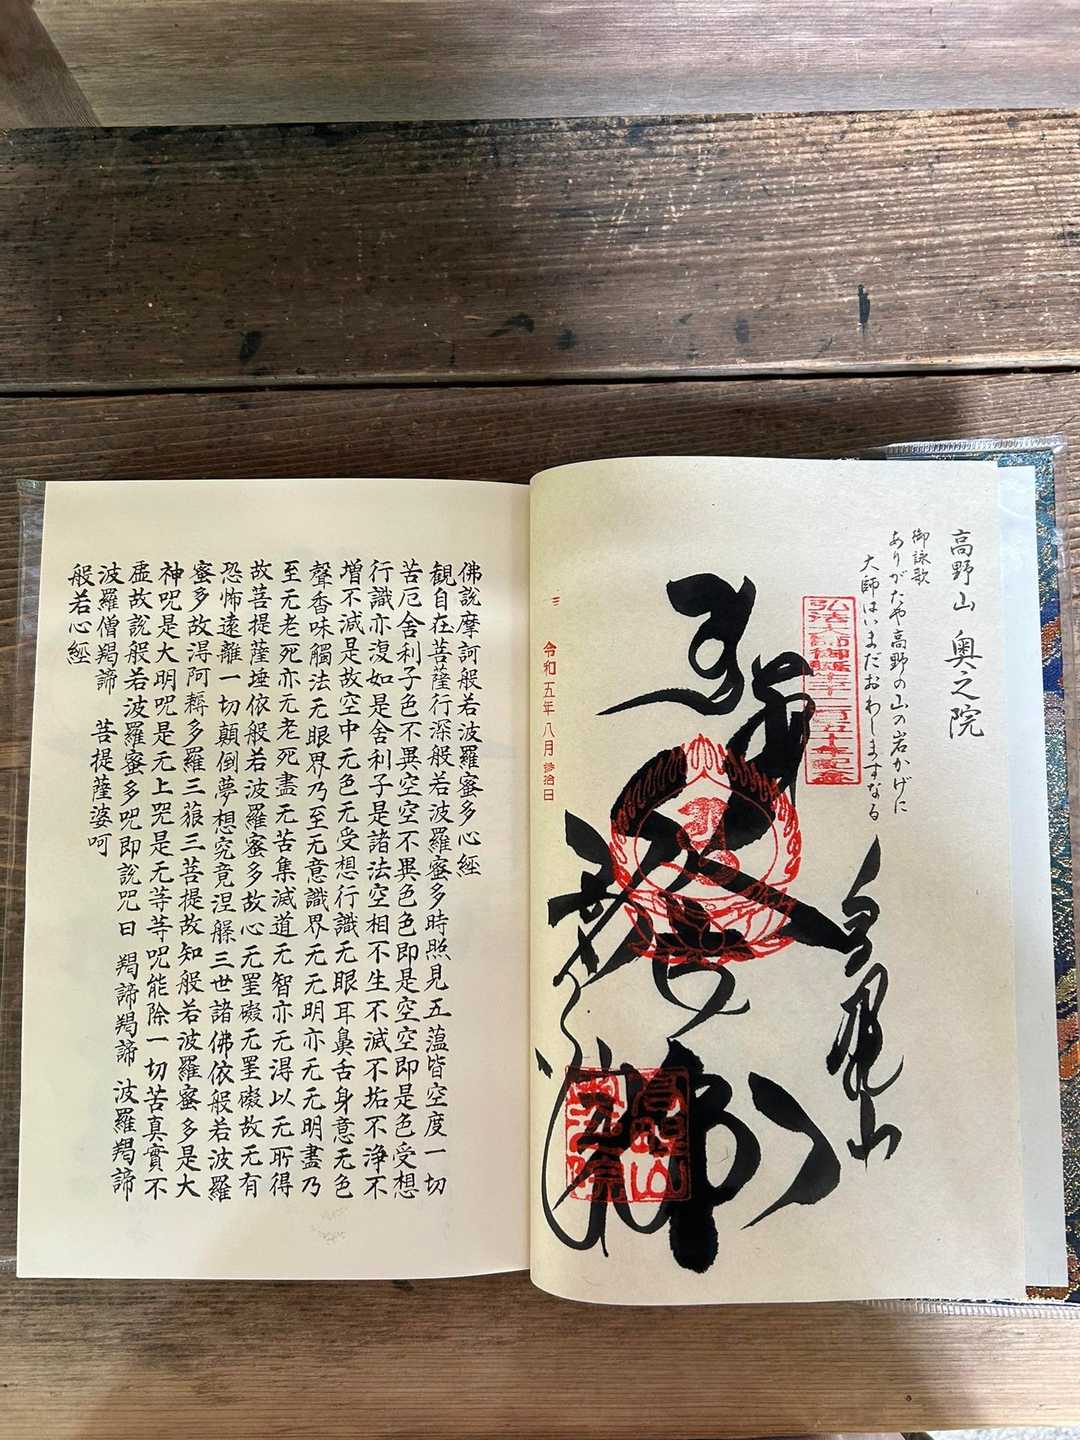 高野山 奥之院
御詠歌
ありがたや高野の山の岩かげに
大師はいまだおわしますなる
高野山
弘法大師御誕生千二百五十年記念
弘法大師
奥之院
三
令和五年八月参拾日
佛說摩訶般若波羅蜜多心經
観自在菩薩行深般若波羅蜜多時照見五蘊皆空度一切
苦厄舍利子色不異空空不異色色即是空空即是色受想
行識亦復如是舍利子是諸法空相不生不滅不垢不浄不
增不減是故空中无色无受想行識无眼耳鼻舌身意无色
聲香味觸法无眼界乃至无意識界无无明亦无无明盡乃
至无老死亦无老死盡无苦集滅道无智亦无得以无所得
故菩提薩埵依般若波羅蜜多故心无罣礙无罣礙故无有
恐怖遠離一切顛倒夢想究竟涅槃三世諸佛依般若波羅
蜜多故得阿耨多羅三藐三菩提故知般若波羅蜜多是大
神呪是大明呪是无上呪是无等等呪能除一切苦真實不
虛故說般若波羅蜜多呪即說呪曰 羯諦羯諦 波羅羯諦
波羅僧羯諦 菩提薩婆呵
般若心經